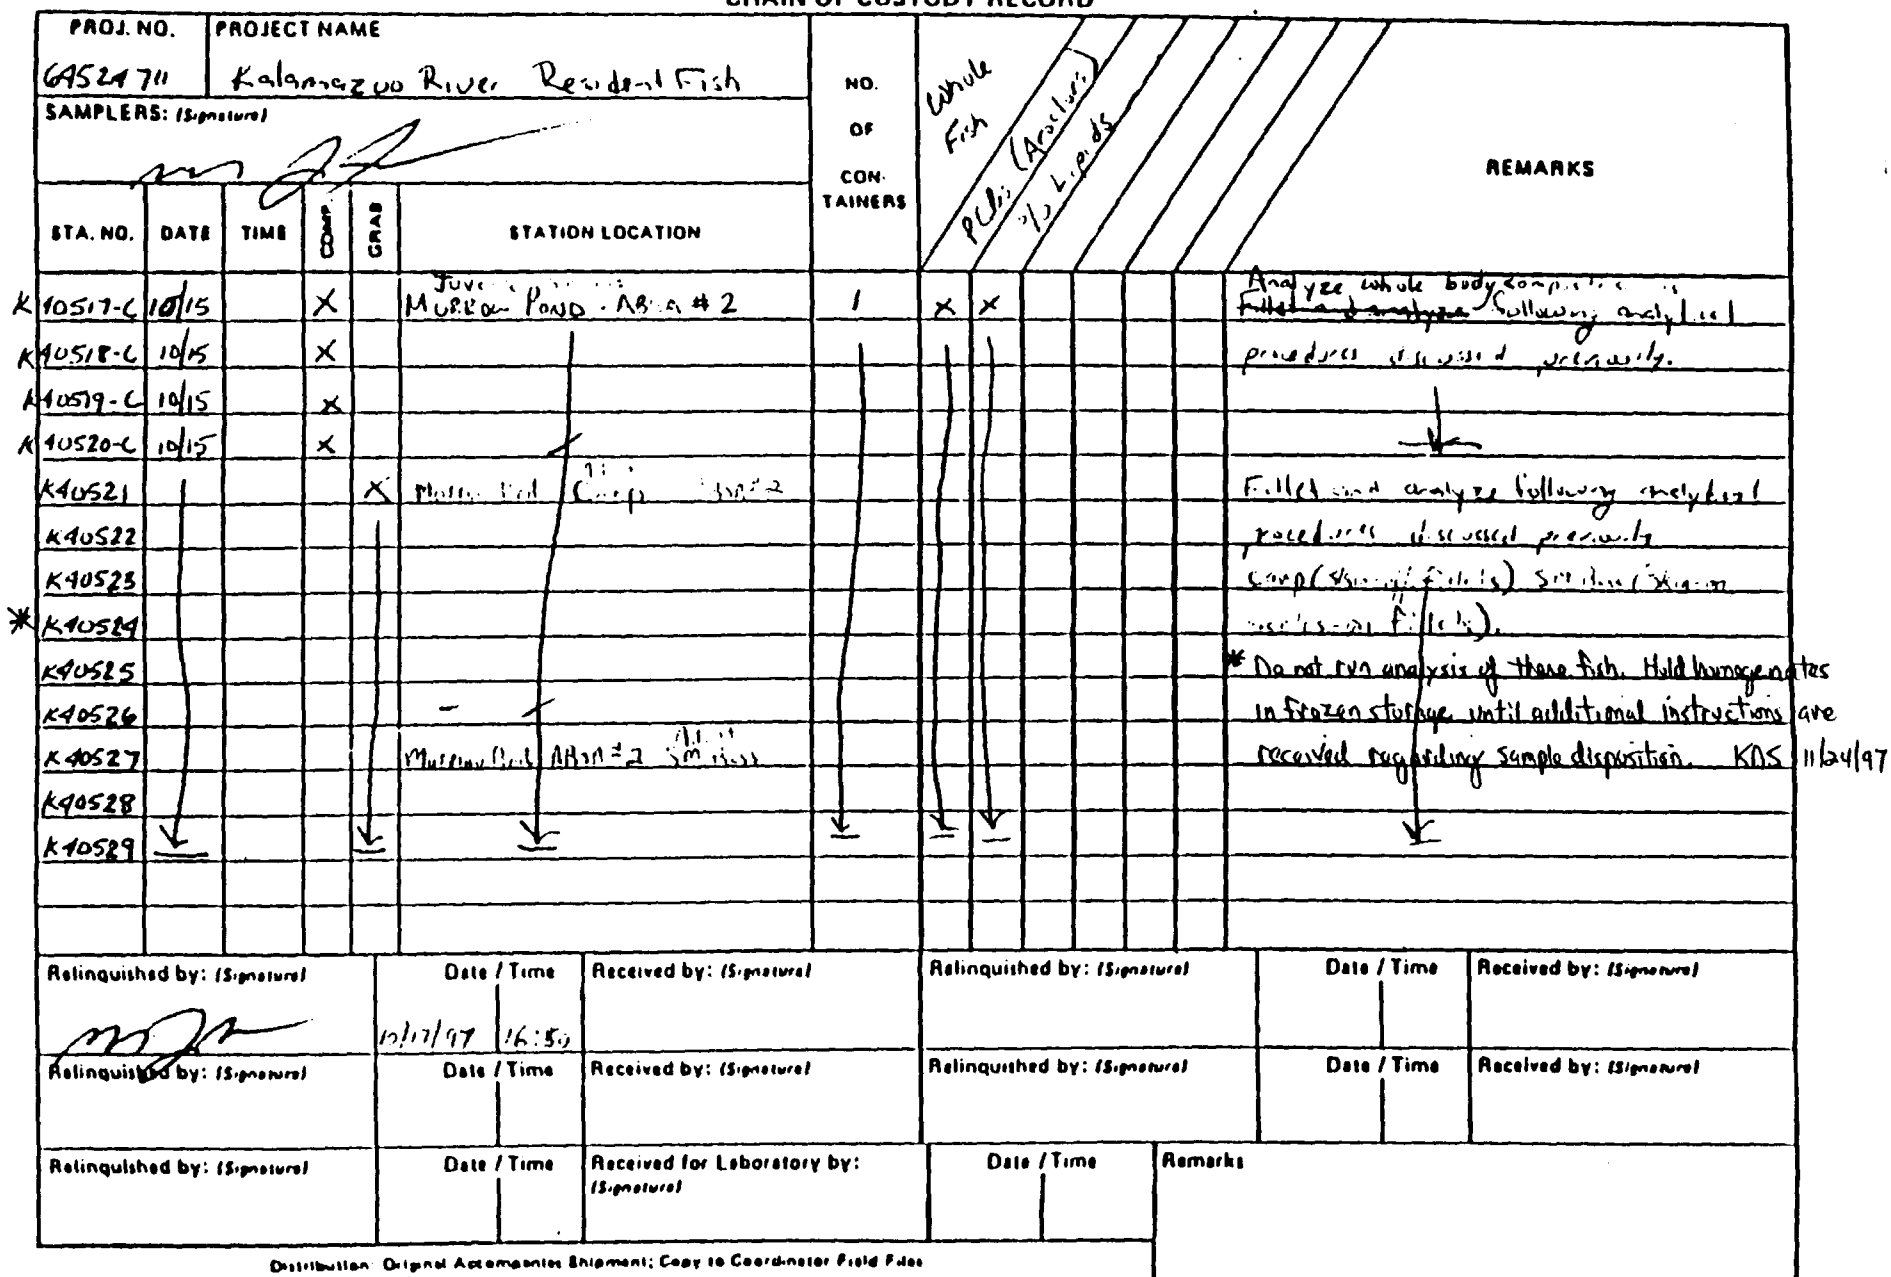 CHAIN OF CUSTODY RECORD
PROJ. NO.
PROJECT NAME
64524711
Kalamazoo River Resident Fish
SAMPLERS: (Signature)
NO. OF CON-TAINERS
Whole Fish
PCBs (Aroclors)
% Lipids
REMARKS
STA. NO. DATE TIME COMP. GRAB STATION LOCATION
K40517-C 10/15 X Morrow Pond - ABSA #2 1 X X Analyze whole body
Fillet and analyze following analytical
K40518-C 10/15 X procedures discussed previously.
K40519-C 10/15 X
K40520-C 10/15 X
K40521 X Carp #2 Fillet and analyze following analytical
K40522 procedures discussed previously
K40523 Carp (
* K40524 fillets).
K40525 * Do not run analysis of these fish. Hold homogenates
K40526 in frozen storage until additional instructions are
K40527 ABSA #2 received regarding sample disposition. KDS 11/24/97
K40528
K40529
Relinquished by: (Signature) Date / Time Received by: (Signature) Relinquished by: (Signature) Date / Time Received by: (Signature)
10/17/97 16:50
Relinquished by: (Signature) Date / Time Received by: (Signature) Relinquished by: (Signature) Date / Time Received by: (Signature)
Relinquished by: (Signature) Date / Time Received for Laboratory by: (Signature) Date / Time Remarks
Distribution: Original Accompanies Shipment; Copy to Coordinator Field Files